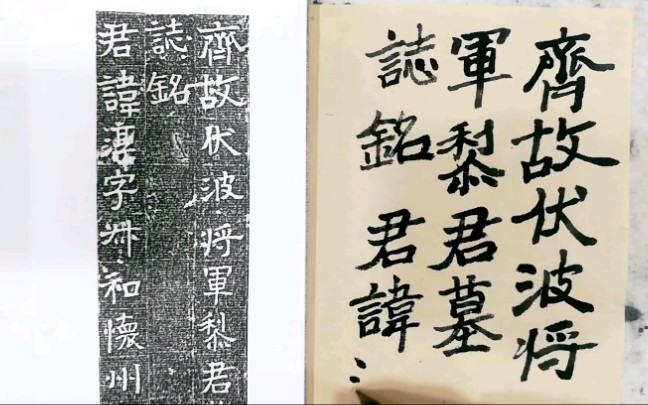 齊故伏波将軍黎君
誌銘
君諱字和懷州
齊故伏波将
軍黎君墓
誌銘 君諱